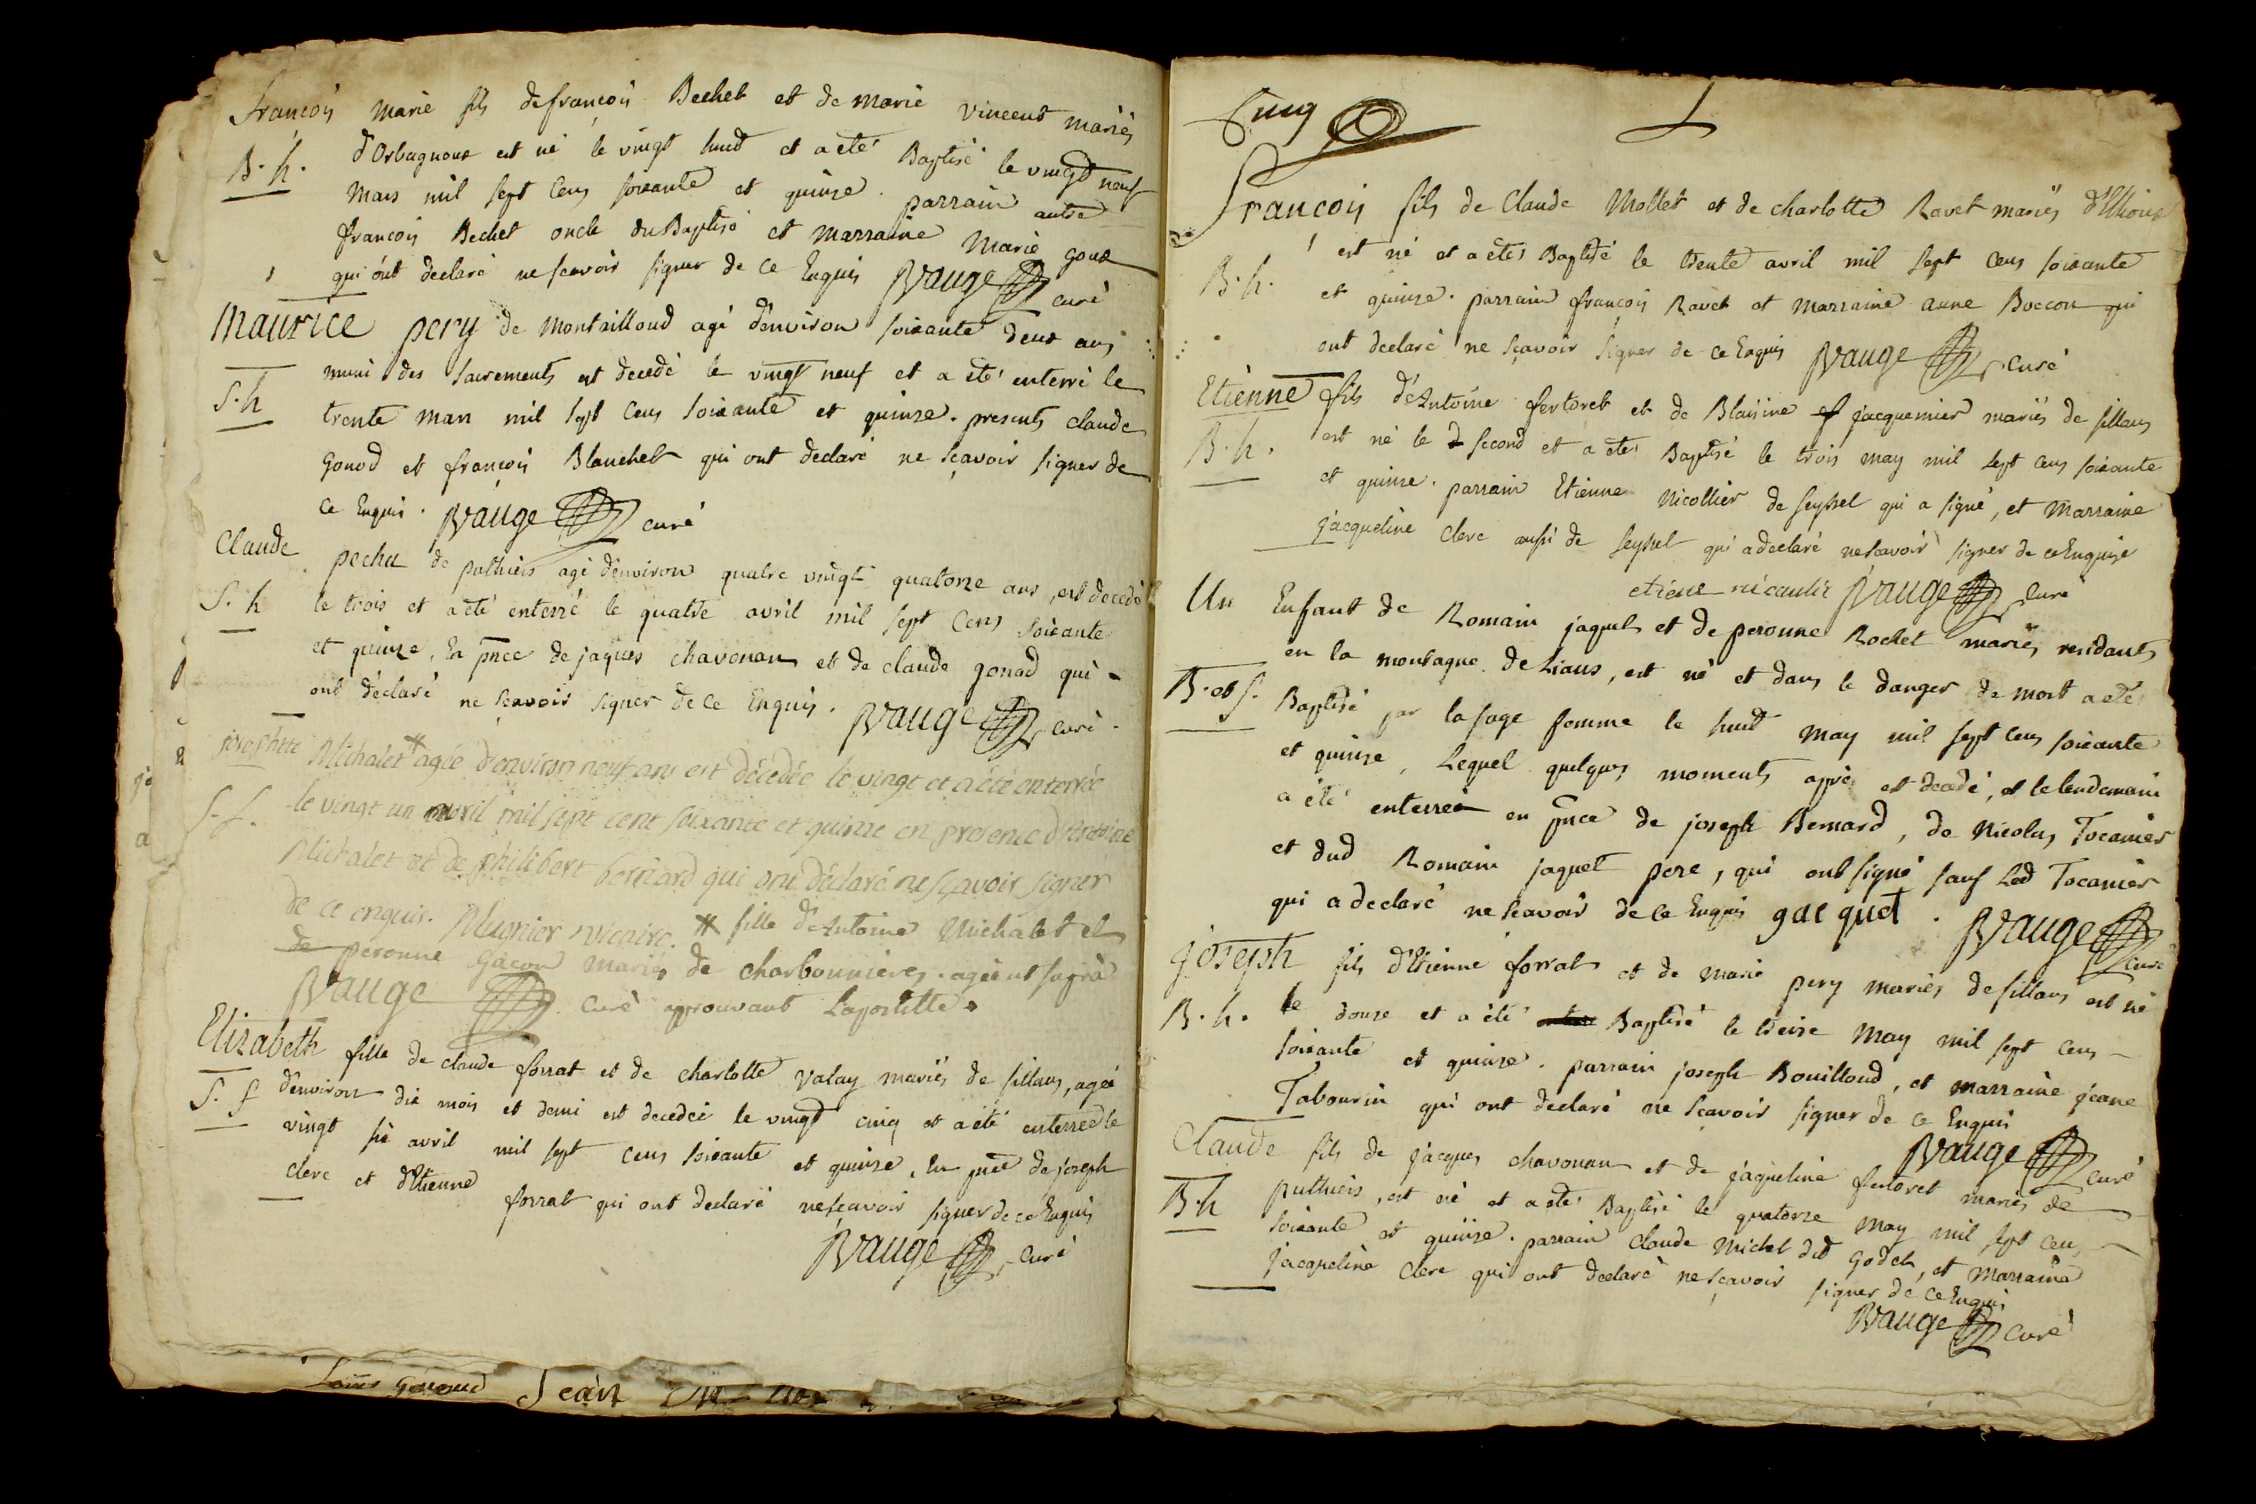 françois marie fils de françois Bechet et de marie vincent mariés
B. h.
d'Orbagnoux est né le vingt huit et a eté Baptisé le vingt neuf
mars mil sept Cens soixante et quinze. parrain autre
françois Bechet oncle du Baptisé et marraine Marie goux
qui ont declaré ne scavoir signer de ce Enquis Vauge curé
Maurice pery de Montaillloud agé d'environ soixante deux ans
muni des sacrements est decedé le vingt neuf et a eté enterré le
S. h
trente mars mil sept Cens soixante et quinze. presents claude
gonod et françois Blanchet qui ont declaré ne sçavoir signer de
ce Enquis. Vauge curé
Claude pecha de puthiers agé d'environ quatre vingt quatorze ans, est decedé
S. h
le trois et a eté enterré le quatre avril mil sept Cens soixante
et quinze, En pnce de jaques chavonau et de claude gonod qui
ont déclaré ne sçavoir signer de ce Enquis. Vauge curé.
josephtte Michalet # agée d'environ neuf ans est décédée le vingt et a été enterrée
S. f.
le vingt un avril mil sept cent soixante et quinze en presence d'Antoine
Michalet et de philibert bernard qui ont déclaré ne sçavoir signer
de ce enquis. Mugnier vicaire. # fille d'Antoine Michalet et
de peronne gacon mariés de charbonnieres. agée ut suprà
Vauge curé approuvant Lapostille.
Elizabeth fille de claude forrat et de charlotte valay mariés de sillans, agée
S. f
d'environ dix mois et demi est decedée le vingt cinq et a été enterrée le
vingt six avril mil sept cens soixante et quinze, En pnce de joseph
clerc et d'Etienne forrat qui ont declaré ne sçavoir signer de ce Enquis
Vauge curé
Jean
Cinq
François fils de Claude Mollet et de charlotte Ravet mariés
B. h.
est né et a eté Baptisé le trente avril mil sept cens soixante
et quinze. parrain françois Ravet et Marraine anne Boccon qui
ont declaré ne sçavoir signer de ce Enquis Vauge curé
Etienne fils d'Antoine fertoret et de Blaisine jacquemier mariés de sillans
B. h.
est né le second et a eté Baptisé le trois may mil sept cens soixante
et quinze. parrain Etienne Nicollier de seyssel qui a signé, et Marraine
jacqueline clerc aussi de seyssel qui a declaré ne scavoir signer de ce Enquise
etiene nicaulir Vauge curé
Un Enfant de Romain jaquet et de peronne Rochet mariés residants
en la montagne de Lians, est né et dans le danger de mort a eté
B. et S.
Baptisé par la sage femme le huit may mil sept cens soixante
et quinze, Lequel quelques moments après est decedé, et le lendemain
a été enterré en pnce de joseph Bernard, de Nicolas Tocanier
et dud Romain jaquet pere, qui ont signé sauf Led Tocanier
qui a declaré ne scavoir de ce Enquis gacquet. Vauge curé
Joseph fils d'Etienne forrat et de marie pery mariés de sillans est né
B. h.
le douze et a été Baptisé le treize May mil sept cens
soixante et quinze. parrain joseph Bouilloud, et marraine jeane
Tabourin qui ont declaré ne scavoir signer de ce Enquis
Vauge curé
Claude fils de jacques chavonau et de jaqueline fertoret mariés de
B. h
puthiers, est né et a été Baptisé le quatorze May mil sept cens
soixante et quinze. parrain claude Michel dit godet, et Marraine
jacqueline clerc qui ont declaré ne sçavoir signer de ce Enquis
Vauge curé